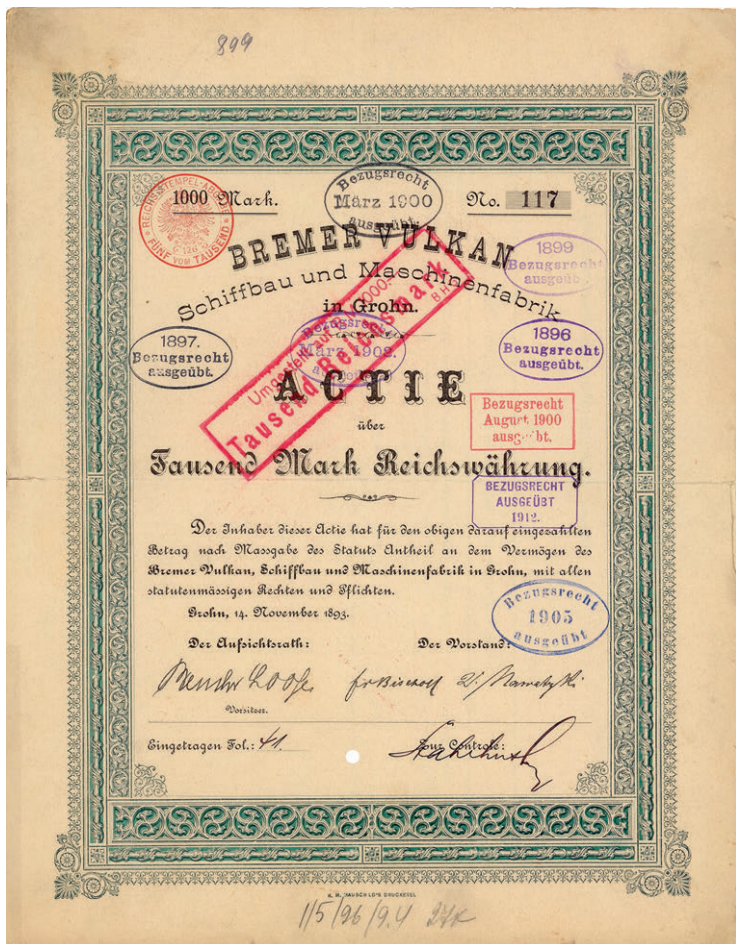 899
REICHSSTEMPEL-ABGABE
FÜNF VOM TAUSEND
1000 Mark.
Bezugsrecht
März 1900
ausgeübt.
No. 117
BREMER VULKAN
Schiffbau und Maschinenfabrik
in Grohn.
1899
Bezugsrecht
ausgeübt.
1897.
Bezugsrecht
ausgeübt.
Bezugsrecht
März 1902.
1896
Bezugsrecht
ausgeübt.
Umgestellt auf RM 1000.-
Tausend Reichsmark
ACTIE
über
Bezugsrecht
August 1900
ausgeübt.
Tausend Mark Reichswährung.
BEZUGSRECHT
AUSGEÜBT
1912.
Der Inhaber dieser Actie hat für den obigen darauf eingezahlten
Betrag nach Massgabe des Statuts Antheil an dem Vermögen des
Bremer Vulkan, Schiffbau und Maschinenfabrik in Grohn, mit allen
statutenmässigen Rechten und Pflichten.
Grohn, 14. November 1893.
Bezugsrecht
1905
ausgeübt
Der Aufsichtsrath:
Der Vorstand:
Vorsitzer.
Eingetragen Fol.: 41.
Zur Controle: